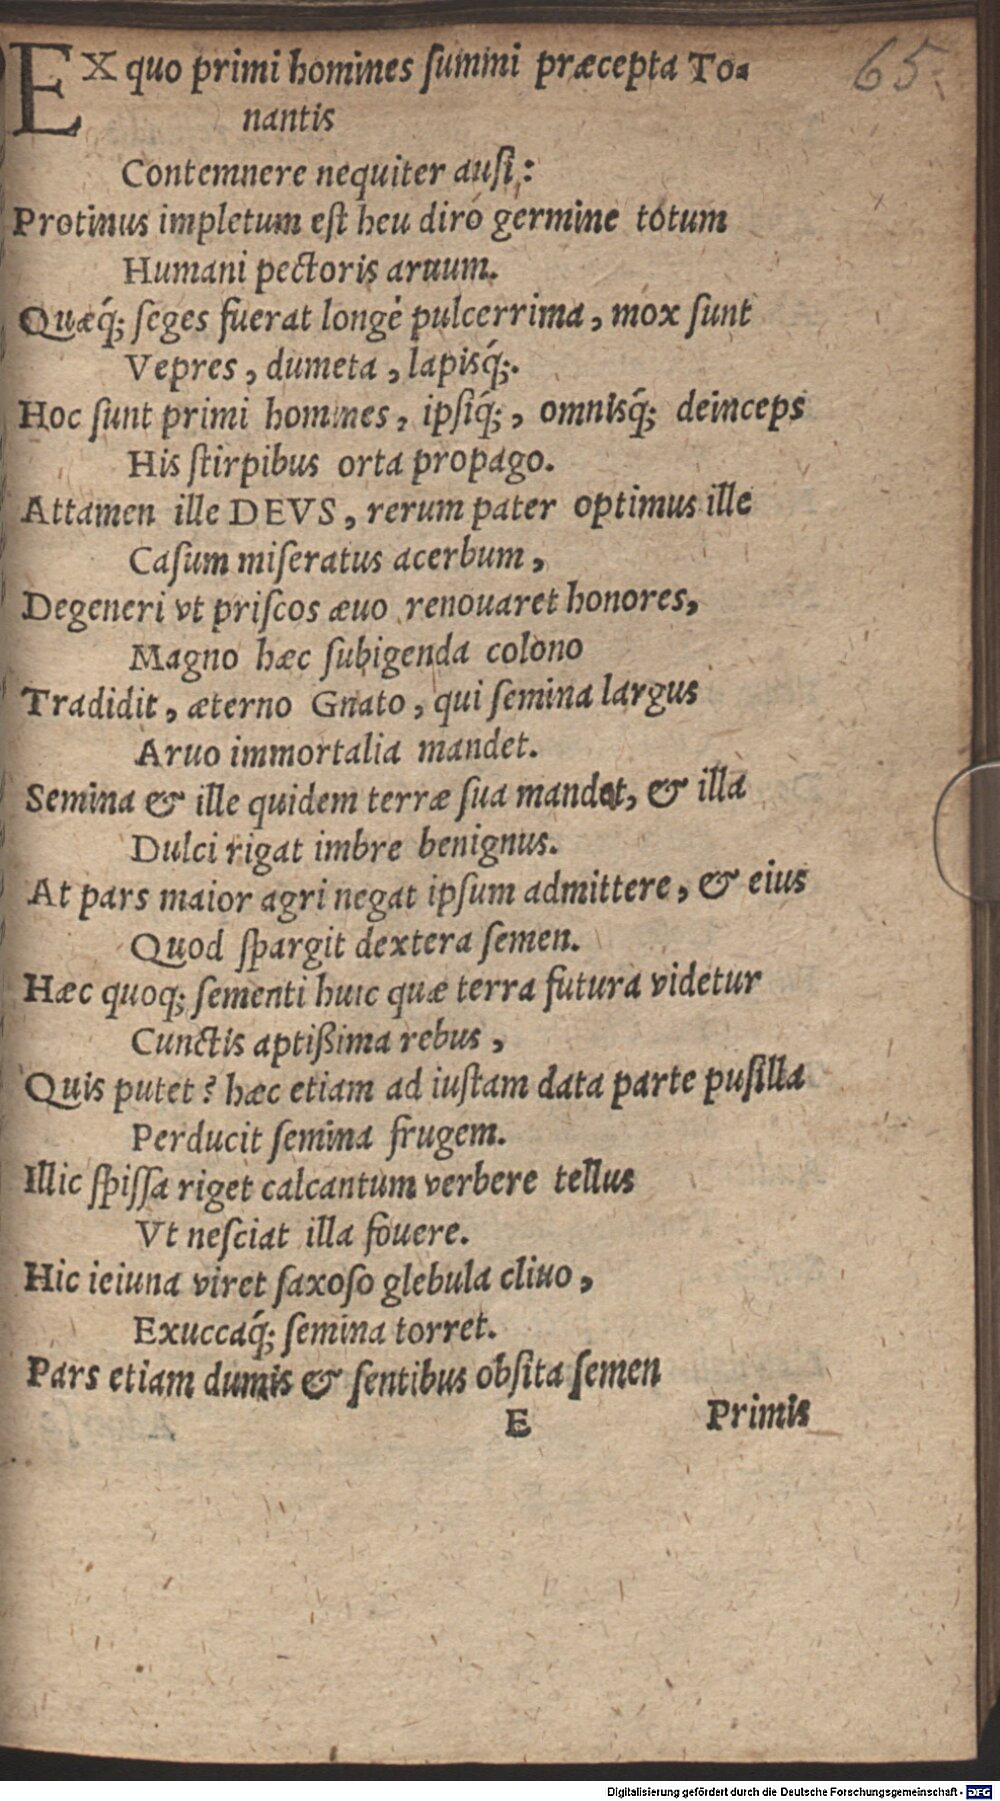 65.
EX quo primi homines ſummi præcepta To-
nantis
Contemnere nequiter auſi:
Protinus impletum eſt heu diro germine totum
Humani pectoris aruum.
Quæq́; ſeges fuerat longè pulcerrima, mox ſunt
Vepres, dumeta, lapisq́;.
Hoc ſunt primi homines, ipſiq́;, omnisq́; deinceps
His ſtirpibus orta propago.
Attamen ille DEVS, rerum pater optimus ille
Caſum miſeratus acerbum,
Degeneri vt priſcos æuo renouaret honores,
Magno hæc ſubigenda colono
Tradidit, æterno Gnato, qui ſemina largus
Aruo immortalia mandet.
Semina & ille quidem terræ ſua mandat, & illa
Dulci rigat imbre benignus.
At pars maior agri negat ipſum admittere, & eius
Quod ſpargit dextera ſemen.
Hæc quoq; ſementi huic quæ terra futura videtur
Cunctis aptißima rebus,
Quis putet? hæc etiam ad iuſtam data parte puſilla
Perducit ſemina frugem.
Illic ſpiſſa riget calcantum verbere tellus
Vt neſciat illa fouere.
Hic ieiuna viret ſaxoſo glebula cliuo,
Exuccaq́; ſemina torret.
Pars etiam dumis & ſentibus obſita ſemen
E Primis
Digitalisierung gefördert durch die Deutsche Forschungsgemeinschaft - DFG